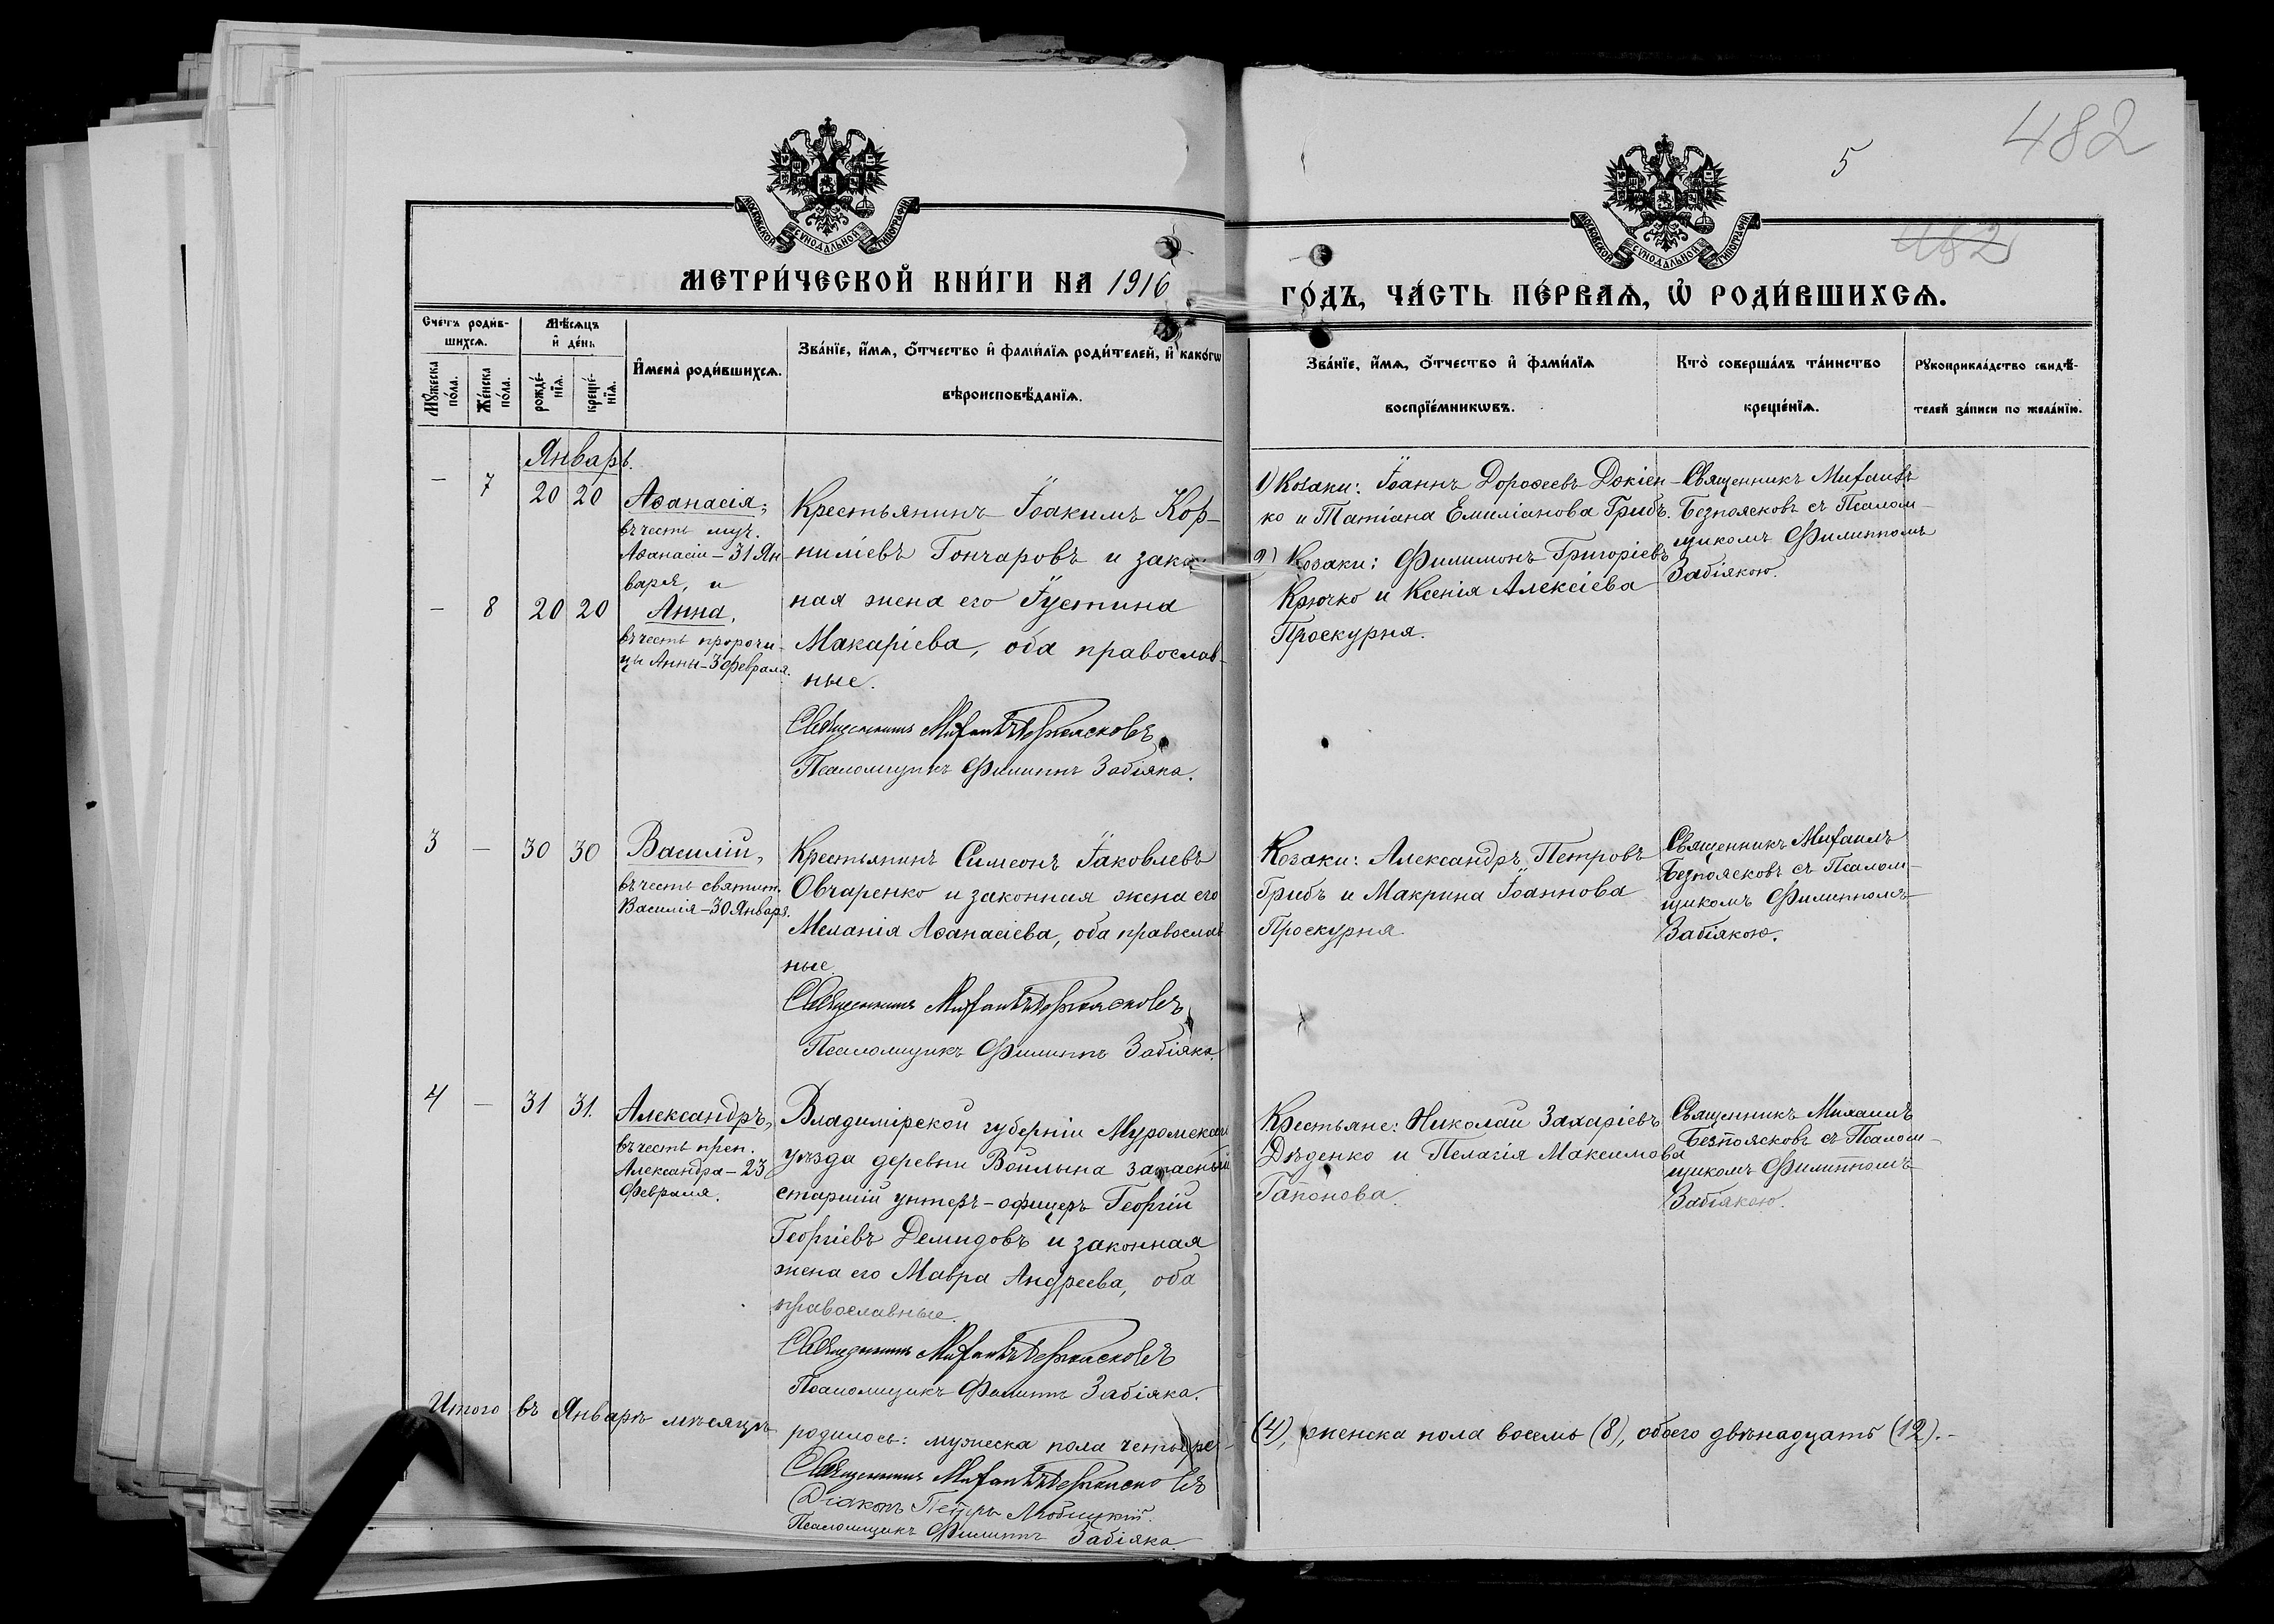 482
5
482
МОСКОВСКОЙ СѴНОДАЛЬНОЙ ТИПОГРАФІИ
МОСКОВСКОЙ СѴНОДАЛЬНОЙ ТИПОГРАФІИ
МЕТРИ́ЧЕСКОЙ КНИ́ГИ НА 1916
ГО́ДЪ, ЧА́СТЬ ПЕ́РВАѦ, Ѽ РОДИ́ВШИХСѦ.
Счетъ роди́в-
шихсѧ.
Мꙋ́жеска
по́ла.
Же́нска
по́ла.
Мѣ́сѧцъ
и҆ де́нь
рожде́-
нїѧ.
креще́-
нїѧ.
И҆мена̀ роди́вшихсѧ.
Зва́нїе, и҆́мѧ, ѻ҆́тчество и҆ фами́лїѧ роди́телей, и҆ како́гѡ
вѣроисповѣ́данїѧ.
Зва́нїе, и҆́мѧ, ѻ҆́тчество и҆ фами́лїѧ
воспрїе́мникѡвъ.
Кто̀ соверша́лъ та́инство
креще́нїѧ.
Рꙋкоприкла́дство свидѣ́-
телей за́писи по жела́нїю.
Январь.
— 7 20 20
Аѳанасія,
въ честь муч.
Аѳанасіи — 31 Ян-
варя, и
— 8 20 20
Анна,
въ честь пророчи-
цы Анны — 3 Февраля.
Крестьянинъ Іоакимъ Кор-
ниліевъ Гончаровъ и закон-
ная жена его Іустина
Макаріева, оба православ-
ные.
Священникъ Михаилъ Безпоясковъ
Псаломщикъ Филиппъ Забіяка.
1) Козаки: Іоаннъ Дороѳеевъ Докіен-
ко и Татіана Емиліанова Грибъ.
2) Козаки: Филимонъ Григоріевъ
Крючко и Ксенія Алексіева
Проскурня.
Священникъ Михаилъ
Безпоясковъ съ Псалом-
щикомъ Филиппомъ
Забіякою.
3 — 30 30
Василій,
въ честь святит.
Василія — 30 Января.
Крестьянинъ Симеонъ Іаковлевъ
Овчаренко и законная жена его
Меланія Аѳанасіева, оба православ-
ные.
Священникъ Михаилъ Безпоясковъ
Псаломщикъ Филиппъ Забіяка.
Козаки: Александръ Петровъ
Грибъ и Макрина Іоаннова
Проскурня
Священникъ Михаилъ
Безпоясковъ съ Псалом-
щикомъ Филиппомъ
Забіякою.
4 — 31 31.
Александръ,
въ честь преп.
Александра — 23
Февраля.
Владимірской губерніи Муромскаго
уѣзда деревни Войлына запасный
старшій унтеръ-офицеръ Георгій
Георгіевъ Демидовъ и законная
жена его Мавра Андреева, оба
православные.
Священникъ Михаилъ Безпоясковъ
Псаломщикъ Филиппъ Забіяка.
Крестьяне: Николай Захаріевъ
Дѣденко и Пелагія Максимова
Гапонова.
Священникъ Михаилъ
Безпоясковъ съ Псалом-
щикомъ Филиппомъ
Забіякою.
Итого въ Январѣ мѣсяцѣ родилось: мужеска пола четыре (4), женска пола восемь (8), обоего двѣнадцать (12). —
Священникъ Михаилъ Безпоясковъ
Діаконъ Петръ Любицкій.
Псаломщикъ Филиппъ Забіяка.